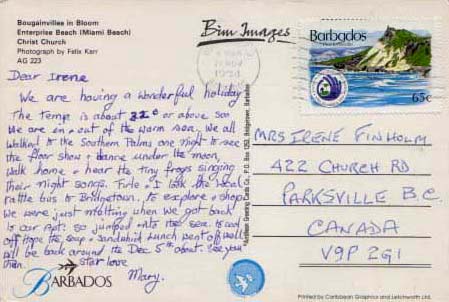 Bougainvillea in Bloom
Enterprise Beach (Miami Beach)
Christ Church
Photograph by Felix Kerr
AG 223
Bim Images
Barbados
65c
Dear Irene
We are having a wonderful holiday
The temp is about 32° or above so
we are in & out of the warm sea. We all
walked to the Southern Palms one night to see
the floor show & dance under the moon,
walk home & hear the tiny frogs singing
their night songs. & I took the local
rattle bus to Bridgetown, to explore & shop
We were just melting when we got back
to our apt. so jumped into the sea to cool
off. Hope the soup & sandwich lunch went off well
will be back around the Dec 5th about. See you
then. love
Mary.
BARBADOS
MRS IRENE FINHOLM
422 CHURCH RD
PARKSVILLE B.C.
CANADA
V9P 2G1
Greeting Cards Co., P.O. Box 1252, Bridgetown, Barbados
Printed by Caribbean Graphics and Letchworth Ltd.